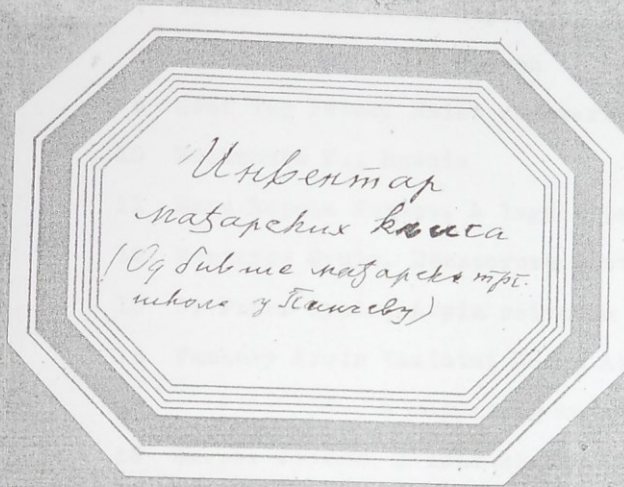 Инвентар
мађарских књига
(Од бивше мађарске трг.
школе у Панчеву)